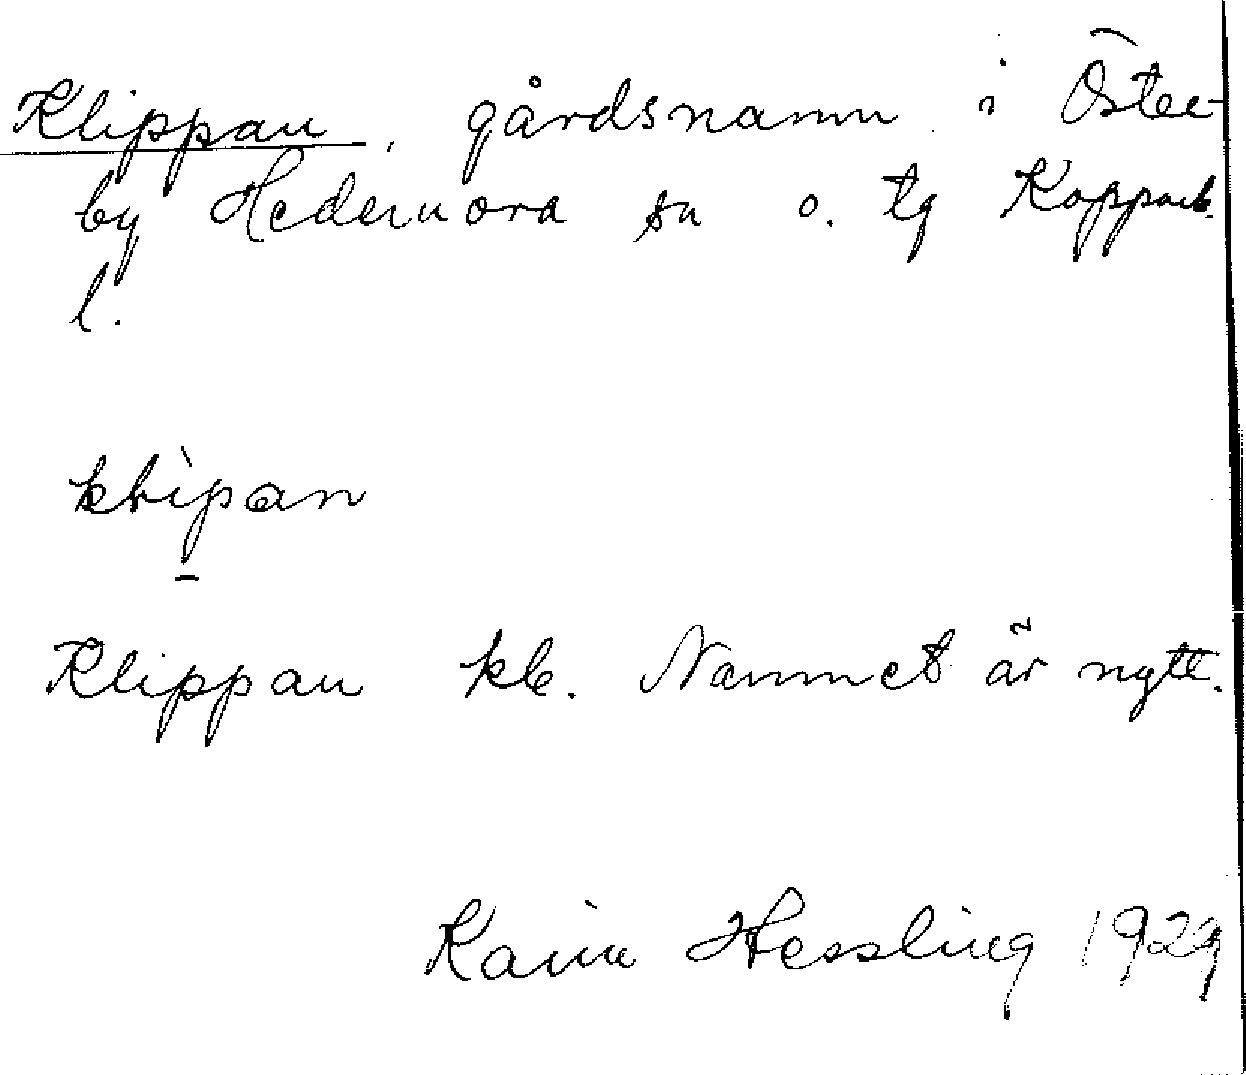 Klippan, gårdsnamn i Öster-
by Hedemora sn o. tg Kopparb.
l.
klìpan
Klippan kb. Namnet är nytt.
Karin Hessling 1929